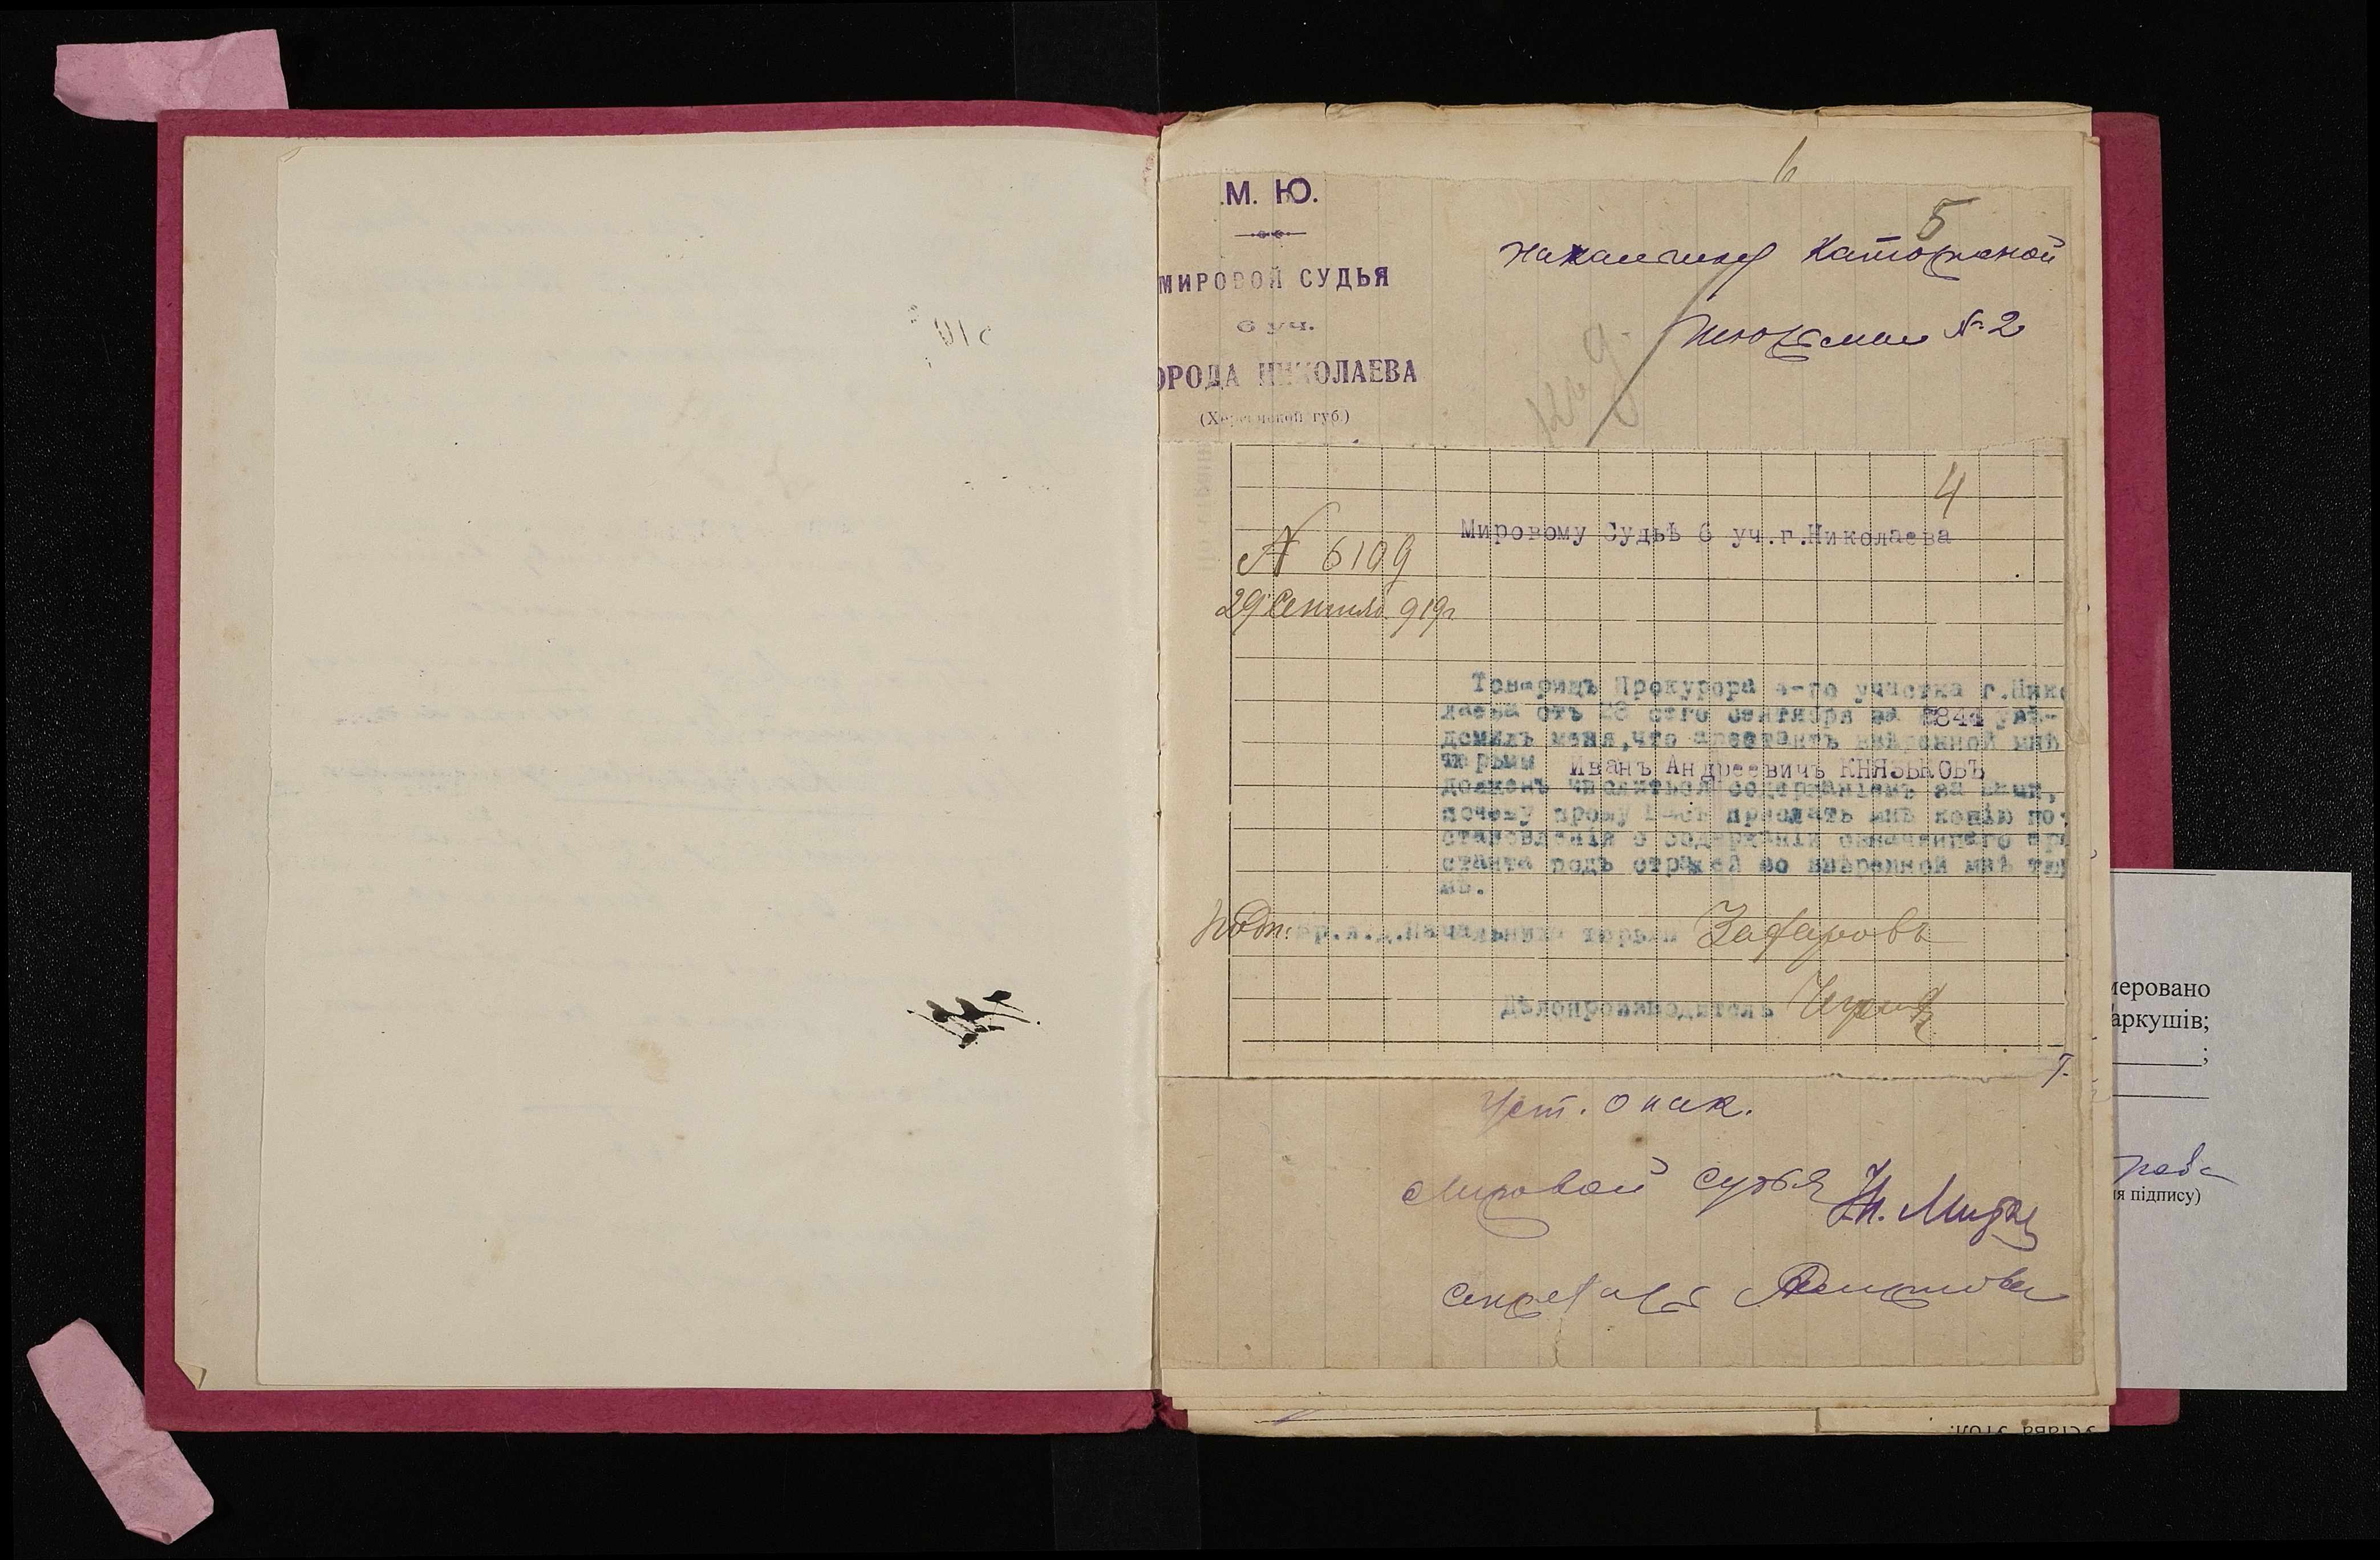 6
М. Ю.
МИРОВОЙ СУДЬЯ
6 уч.
ОРОДА НИКОЛАЕВА
(Херсонской губ.)
5
Начальнику Каторжной
Тюрьмы № 2
4
Мировому Судьѣ 6 уч.г.Николаева
№ 6109
29 Сентяб. 919г.
Товарищъ Прокурора 4-го участка г.Нико
лаева отъ 28 сего сентября за 844 увѣ-
домилъ меня,что арестантъ ввѣренной мнѣ
тюрьмы Иванъ Андреевичъ КНЯЗЬКОВЪ
долженъ числиться содержаніемъ за Вами,
почему прошу Васъ прислать мнѣ копію по-
становленія о содержаніи означеннаго аре
станта подъ стражей во ввѣренной мнѣ тюр
мѣ.
Подп. Вр.и.д.Начальника тюрьмы Зафаровъ
Дѣлопроизводитель
Уст. о нак.
Мировой Судья
Секретарь
меровано
аркушів;
;
ія підпису)
Устава Угол.